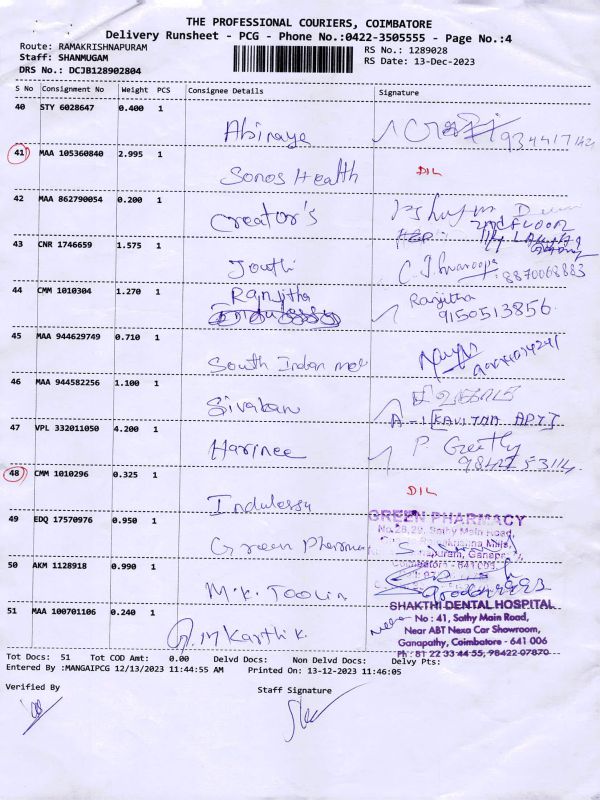 THE PROFESSIONAL COURIERS, COIMBATORE
Delivery Runsheet - PCG - Phone No.:0422-3505555 - Page No.:4
Route: RAMAKRISHNAPURAM RS No.: 1289028
Staff: SHANMUGAM RS Date: 13-Dec-2023
DRS No.: DCJB128902804
S No Consignment No Weight PCS Consignee Details Signature
40 STY 6028647 0.400 1
Abinaya
41 MAA 105360840 2.995 1
Sonos Health DIL
42 MAA 862790054 0.200 1
Creator's 2nd FLOOR
43 CNR 1746659 1.575 1
South 8870068883
44 CMM 1010304 1.270 1
Ranjitha Ranjitha
9150513856
45 MAA 944629749 0.710 1
South Indian
46 MAA 944582256 1.100 1
Sivaban A-1 [KAVITHA APT]
47 VPL 332011050 4.200 1
Harinee P.
48 CMM 1010296 0.325 1
DIL
49 EDQ 17570976 0.950 1
GREEN PHARMACY
No.28,29, Sathy Main Road,
Green
Coimbatore - 641 006
50 AKM 1128918 0.990 1
M.K.
51 MAA 100701106 0.240 1
M Karthik
SHAKTHI DENTAL HOSPITAL
No : 41, Sathy Main Road,
Near ABT Nexa Car Showroom,
Ganapathy, Coimbatore - 641 006
Ph : 81 22 33 44 55, 98422 07870
Tot Docs: 51 Tot COD Amt: 0.00 Delvd Docs: Non Delvd Docs: Delvy Pts:
Entered By :MANGAIPCG 12/13/2023 11:44:55 AM Printed On: 13-12-2023 11:46:05
Verified By Staff Signature